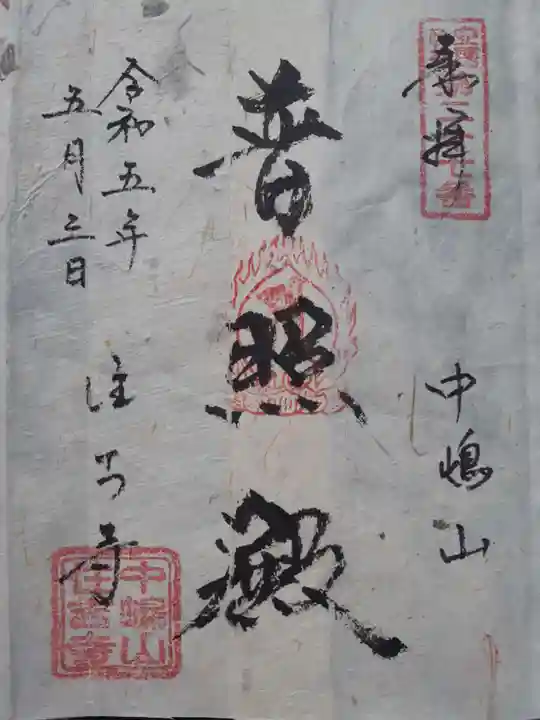 奉拝
中嶋山
普照殿
令和五年
五月三日
住吉寺
中嶋山
住吉寺